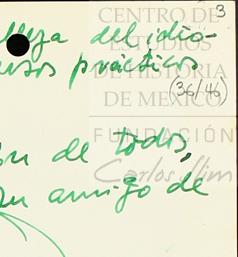 3
CENTRO DE
lleza del idio-
ESTUDIOS
usos prácticos
DE HISTORIA
(36/46)
DE MÉXICO
FUNDACIÓN
ón de todos,
Carlos Slim
su amigo de